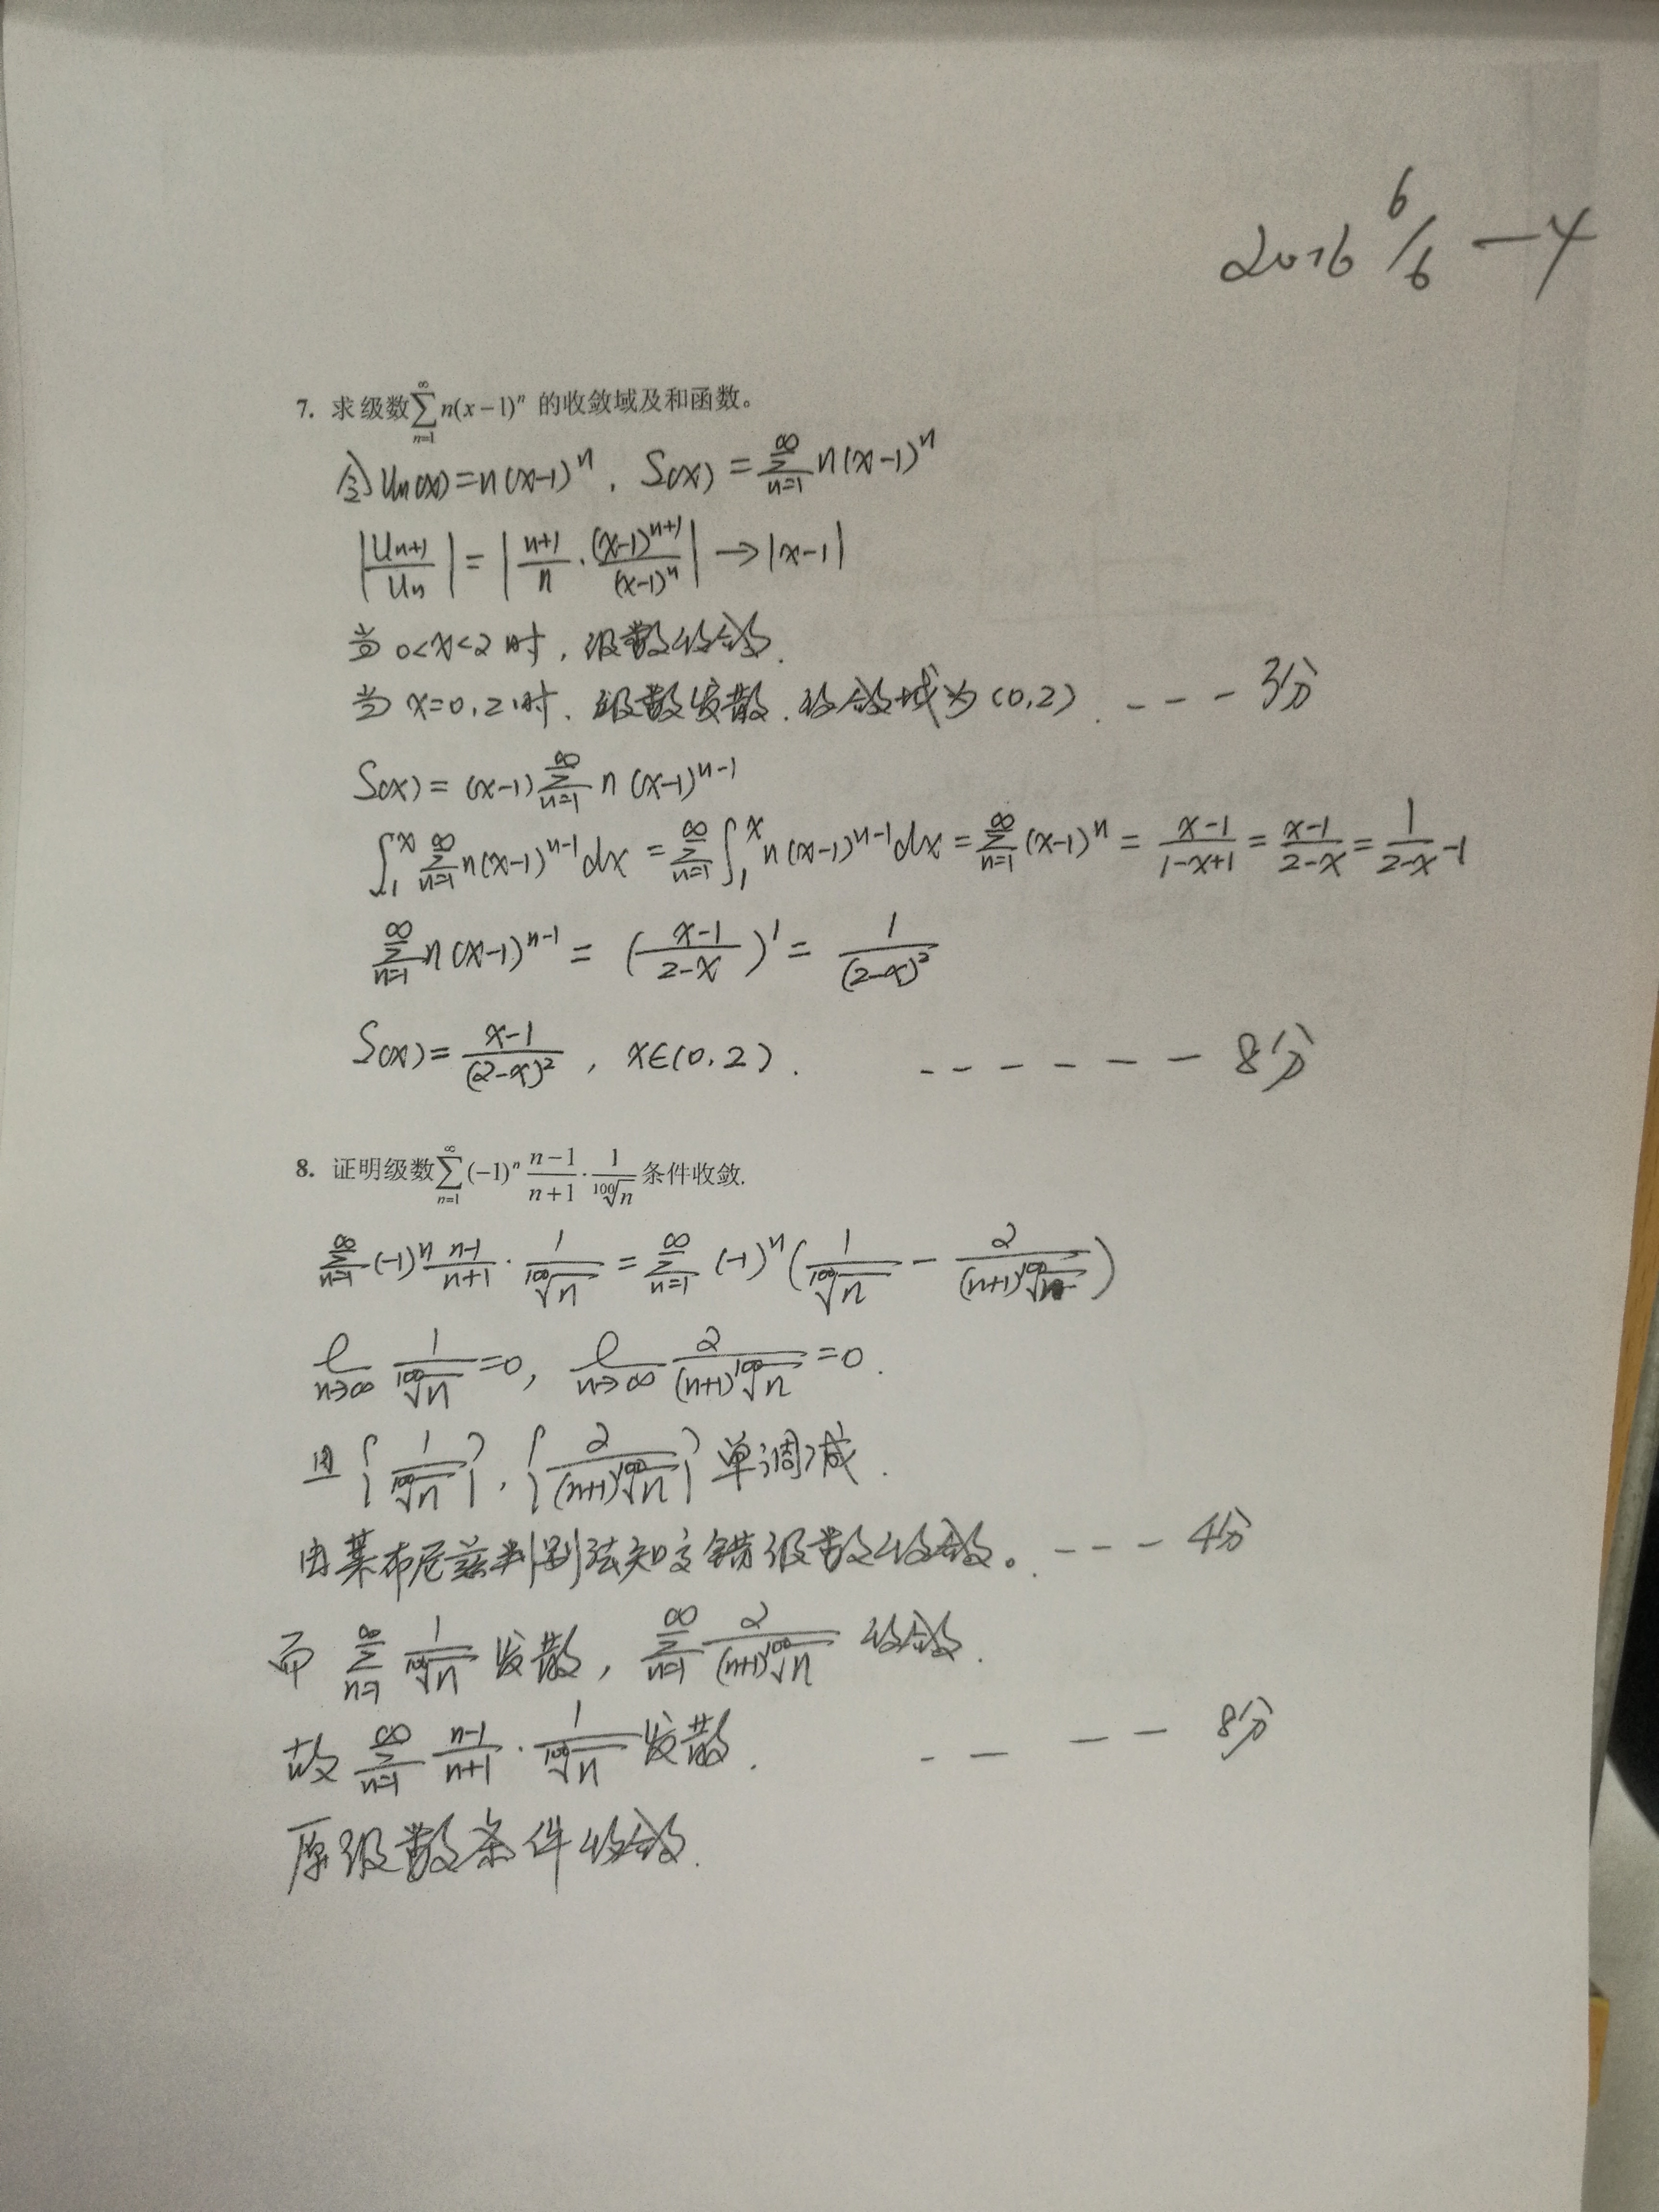 2016 6/6 -4
7. 求级数∑_{n=1}^{∞} n(x-1)^n 的收敛域及和函数。
令 u_n(x)=n(x-1)^n, S(x)=∑_{n=1}^{∞} n(x-1)^n
|u_{n+1}/u_n| = |(n+1)/n · (x-1)^{n+1}/(x-1)^n| → |x-1|
当 0<x<2 时, 级数收敛.
当 x=0,2 时, 级数发散. 收敛域为 (0,2). --- 3分
S(x) = (x-1)∑_{n=1}^{∞} n(x-1)^{n-1}
∫_1^x ∑_{n=1}^{∞} n(x-1)^{n-1}dx = ∑_{n=1}^{∞} ∫_1^x n(x-1)^{n-1}dx = ∑_{n=1}^{∞} (x-1)^n = (x-1)/(1-x+1) = (x-1)/(2-x) = 1/(2-x) -1
∑_{n=1}^{∞} n(x-1)^{n-1} = ((x-1)/(2-x))' = 1/(2-x)^2
S(x) = (x-1)/(2-x)^2, x∈(0,2). ------ 8分
8. 证明级数∑_{n=1}^{∞} (-1)^n (n-1)/(n+1) · 1/\sqrt[100]{n} 条件收敛.
∑_{n=1}^{∞} (-1)^n (n-1)/(n+1) · 1/\sqrt[100]{n} = ∑_{n=1}^{∞} (-1)^n (1/\sqrt[100]{n} - 2/((n+1)\sqrt[100]{n}))
l_{n→∞} 1/\sqrt[100]{n} = 0, l_{n→∞} 2/((n+1)\sqrt[100]{n}) = 0.
且 {1/\sqrt[100]{n}}, {2/((n+1)\sqrt[100]{n})} 单调减.
由莱布尼兹判别法知交错级数收敛。--- 4分
而 ∑_{n=1}^{∞} 1/\sqrt[100]{n} 发散, ∑_{n=1}^{∞} 2/((n+1)\sqrt[100]{n}) 收敛.
故 ∑_{n=1}^{∞} (n-1)/(n+1) · 1/\sqrt[100]{n} 发散. ---- 8分
原级数条件收敛.